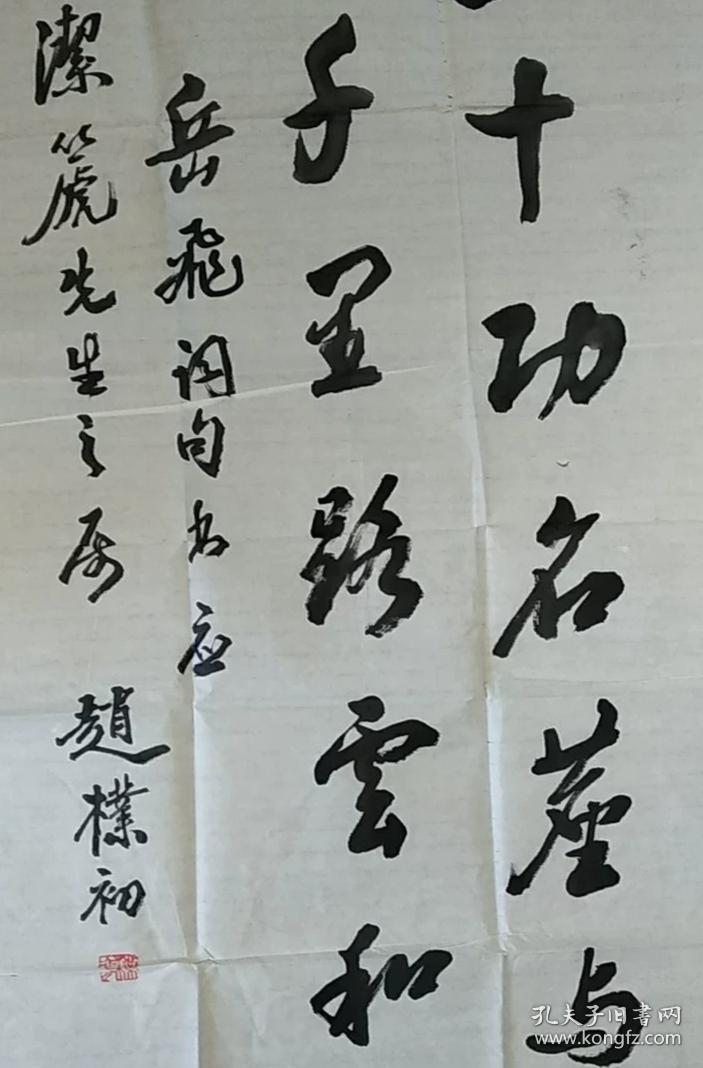 十功名塵与
千里路雲和
岳飛词句书应
潔篪先生之属 趙樸初
孔夫子旧书网
www.kongfz.com